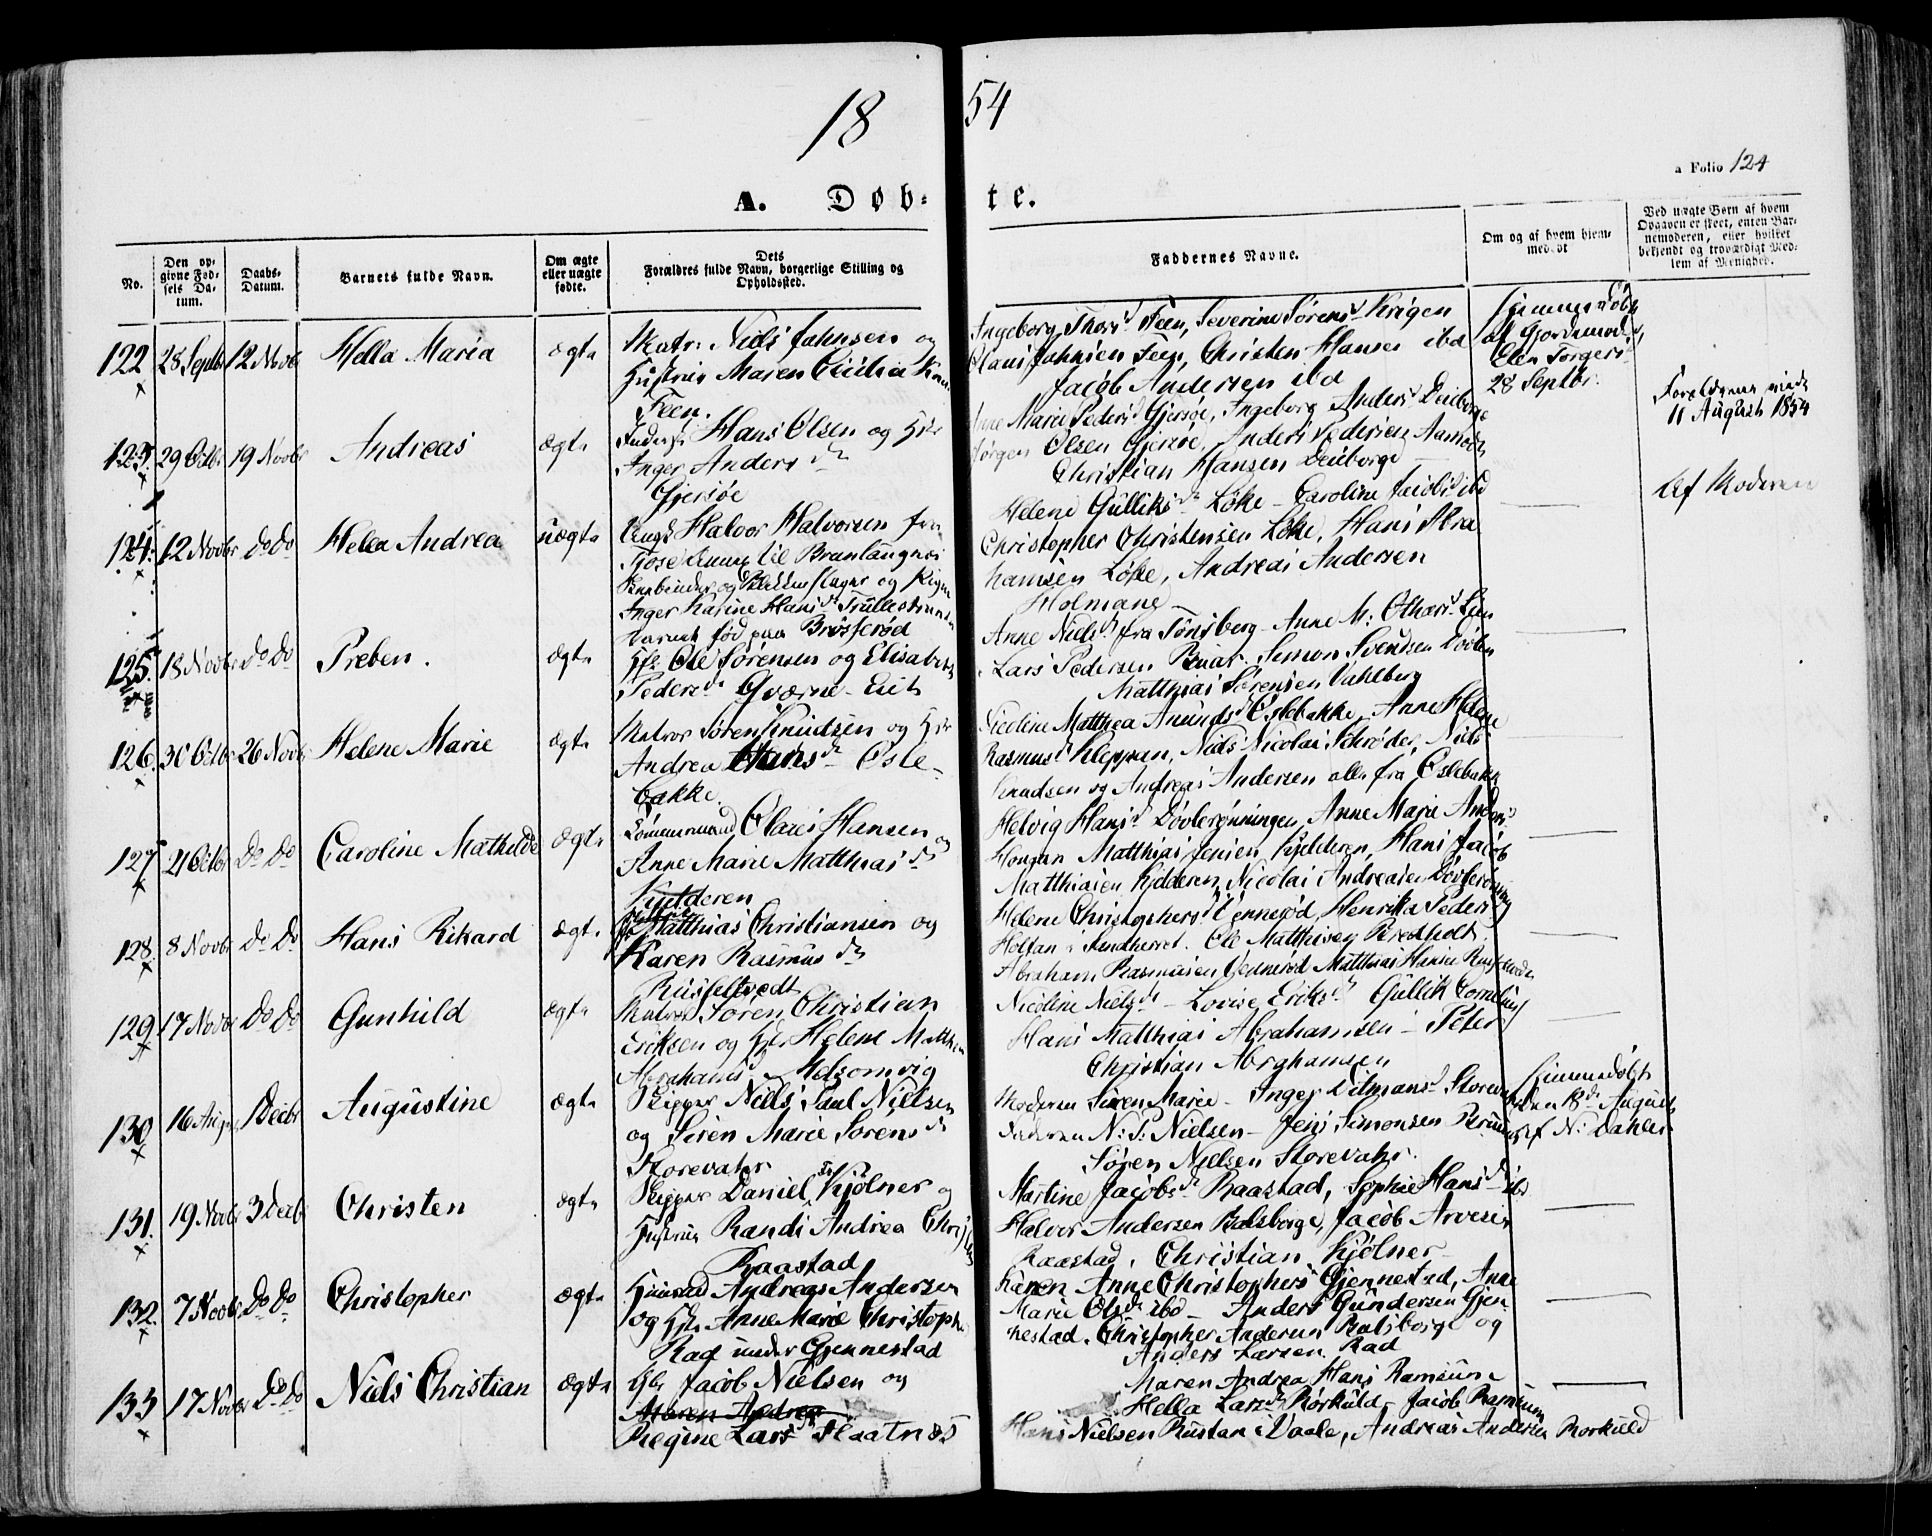 18 54
a Folio 124
A. Døb- te.
No.
Den opgivne Fødsels Datum.
Daabs-Datum.
Barnets fulde Navn.
Om ægte eller uægte fødte.
Dets Forældres fulde Navn, borgerlige Stilling og Opholdssted.
Faddernes Navne.
Om og af hvem hjemmedøbt
Ved uægte Børn af hvem Opgaven er skeet, enten Barnemoderen, eller hvilket bekjendt og troværdigt Medlem af Menighed.
122 28 Septbr 12 Novbr Hella Maria ægte
Matr. Niels Jahnsen og
Hustrue Maren Cicilia
Feen.
Ingeborg Thors d. Feen, Severine Sørens d. Krigen
Olaus Jahnsen Feen, Christen Hansen ibd
Jacob Andersen ibd
Hjemmedøbt
af Gjordemod.
Elen Torgers d.
28 Septbr.
123. 29 Octbr 19 Novbr Andreas ægte
Inderst Hans Olsen og Hst
Inger Anders dr
Gjersøe
Anne Marie Peders d. Gjersøe, Ingeborg Anders d. Deieborge
Jørgen Olsen Gjersøe, Anders Pedersen Aamodt
Christian Hansen Deieborge
Forældrene viede
11 August 1854
124. 12 Novbr Do Do Hella Andrea uægte
Ungk. Halvor Halvorsen fra
Tjøse
Bogbinder og og Pigen
Inger Karine Hans d. Trullestranden
Barnet fød paa Brøsferød
Helene Gulliks dr Løke - Caroline Jacobs d. ibd
Christopher Christensen Løke, Hans Abra
hamsen Løke, Andreas Andersen
Holmane
Af Moderen
125. 18 Novbr Do Do Preben. ægte
Hsb Ole Sørensen og Elisabeth
Peders dr Qværne-Eiet
Anne Niels d. fra Tønsberg - Anne M: Othars d. Lien
Lars Pedersen Buar. Simon Svendsen Døvlen
Matthias Sørensen Vahlberg
126. 30 Octbr 26 Novbr Helene Marie ægte
Matros Søren Knudsen og Hst
Andrea Hans dr Osle-
bakke.
Nicoline Matthea Amunds d. Oslebakke, Anne Helene
Rasmus d. Kleppan, Niels Nicolai Schrøder, Niels
Knudsen og Andreas Andersen alle fra Oslebakke
127 21 Octbr Do Do Caroline Mathilde ægte
Tømmermand Olaus Hansen og
Anne Marie Matthias dr
Kjelderen
Helvig Hans d. Døvlerønningen, Anne Marie Anders d.
Hougan Matthias Jensen Kjelderen, Hans Jacob
Matthiasen Kjelderen, Nicolai Andreasen Døvlerønning
128. 8 Novbr Do Do Hans Rikard ægte
Matthias Christiansen og
Karen Rasmus dr
Russeltvedt
Helene Christophers d. Vennerød, Henrika Peders d.
Holtan i Sandherret. Ole Mathisen Bredholt
Abraham Rasmusen Vennerød Matthias Hansen
129 17 Novbr Do Do Gunhild ægte
Matros Søren Christian
Eriksen og Hst Helene Matthea
Abrahams d. Melsomvig
Nicoline Niels dr - Lovise Eriks dr Gullik Cornelius
Hans Matthias Abrahamsen - Peter
Christian Abrahamsen
130 16 Aug 1 Decbr Augustine ægte
Skipper Niels Paul Nielsen
og Siren Marie Sørens dr
Storevahr
Moderen Siren Marie - Inger Ditmans d. Storevahr
Faderen N: P: Nielsen - Jens Simonsen Bruun
Søren Nielsen Storevahr.
Hjemmedøbt
den 18de August
af N: Dahler
131. 19 Novbr 3 Decbr Christen ægte
Skipper Daniel Kjølner og
Hustrue Randi Andrea Christens
Raastad
Martine Jacobs dr Raastad, Sophie Hans d. ibd
Halvor Andersen Balsberge, Jacob Arvesen
Raastad, Christian Kjølner -
132. 7 Novbr Do Do Christopher ægte
Huusmd Andreas Andersen
og Hst Anne Marie Christophers
Rad under Gjennestad
Karen Anne Christophers d. Gjennestad, Anne
Marie Ols dr ibd - Anders Gundersen Gjen
nestad. Christopher Andersen Balsborge og
Anders Larsen Rad
133 17 Novbr Do Do Niels Christian ægte
Hsb Jacob Nielsen og
Maren Andrea
Regine Lars d. Slaatnæs
Maren Andrea Hans d. Ramsum
Hella Lars dr Rørkuld, Jacob Ramsum
Hans Nielsen Rustan i Vaale, Andreas Andersen Rorkuld